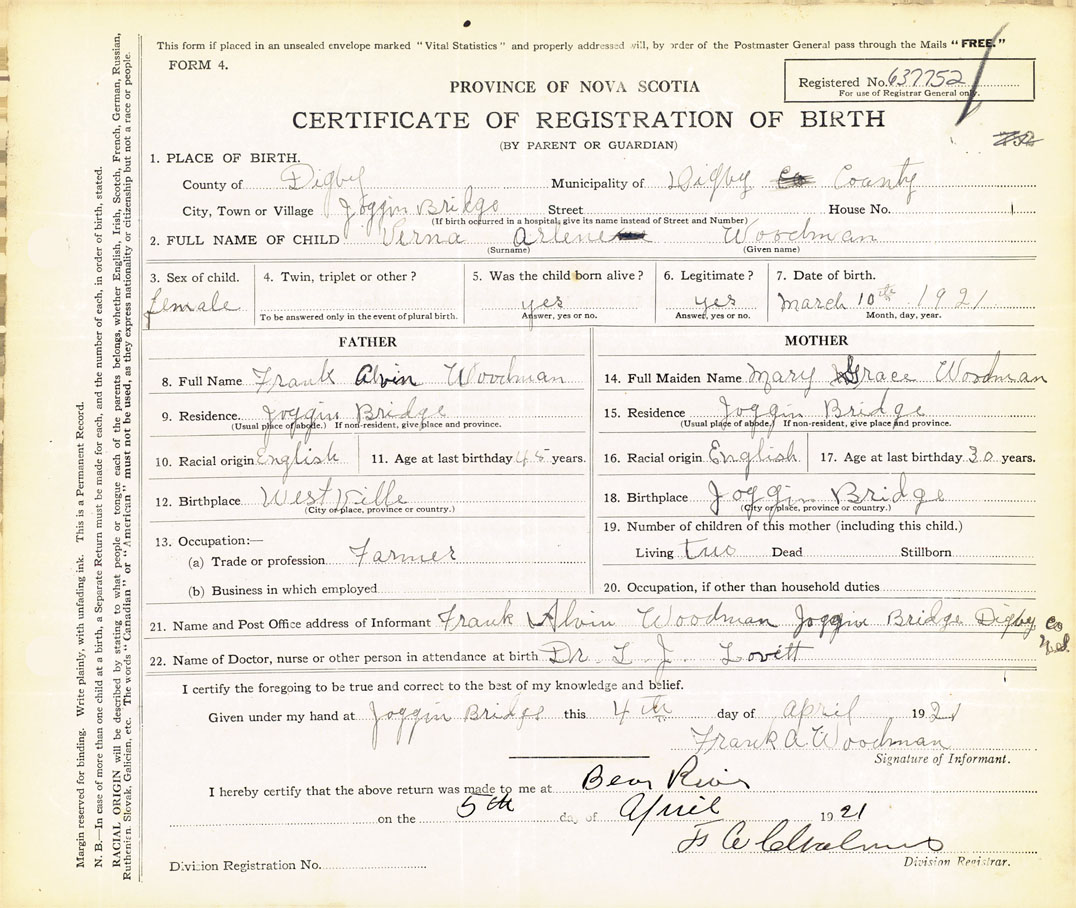 This form if placed in an unsealed envelope marked "Vital Statistics" and properly addressed will, by order of the Postmaster General pass through the Mails "FREE."
FORM 4.
Registered No. 637752
For use of Registrar General only.
PROVINCE OF NOVA SCOTIA
CERTIFICATE OF REGISTRATION OF BIRTH
(BY PARENT OR GUARDIAN)
1. PLACE OF BIRTH.
County of Digby Municipality of Digby Co County
City, Town or Village Joggin Bridge Street House No.
(If birth occurred in a hospital, give its name instead of Street and Number)
2. FULL NAME OF CHILD Verna Arlene Woodman
(Surname) (Given name)
3. Sex of child. 4. Twin, triplet or other? 5. Was the child born alive? 6. Legitimate? 7. Date of birth.
female yes yes March 10th 1921
To be answered only in the event of plural birth. Answer, yes or no. Answer, yes or no. Month, day, year.
FATHER
8. Full Name Frank Alvin Woodman
9. Residence. Joggin Bridge
(Usual place of abode.) If non-resident, give place and province.
10. Racial origin English 11. Age at last birthday 45 years.
12. Birthplace WestVille
(City or place, province or country.)
13. Occupation:—
(a) Trade or profession Farmer
(b) Business in which employed
MOTHER
14. Full Maiden Name Mary Grace Woodman
15. Residence Joggin Bridge
(Usual place of abode.) If non-resident, give place and province.
16. Racial origin English 17. Age at last birthday 30 years.
18. Birthplace Joggin Bridge
(City or place, province or country.)
19. Number of children of this mother (including this child.)
Living two Dead Stillborn
20. Occupation, if other than household duties
21. Name and Post Office address of Informant Frank Alvin Woodman Joggin Bridge Digby Co
N.S.
22. Name of Doctor, nurse or other person in attendance at birth Dr. L. J. Lovett
I certify the foregoing to be true and correct to the best of my knowledge and belief.
Given under my hand at Joggin Bridge this 4th day of April 1921
Frank A. Woodman
Signature of Informant.
I hereby certify that the above return was made to me at Bear River
on the 5th day of April 1921
Division Registrar.
Division Registration No.
Margin reserved for binding. Write plainly, with unfading ink. This is a Permanent Record.
N. B.—In case of more than one child at a birth, a Separate Return must be made for each, and the number of each, in order of birth, stated.
RACIAL ORIGIN will be described by stating to what people or tongue each of the parents belongs, whether English, Irish, Scotch, French, German, Russian,
Ruthenian, Slovak, Galician, etc. The words "Canadian" or "American" must not be used, as they express nationality or citizenship but not a race or people.